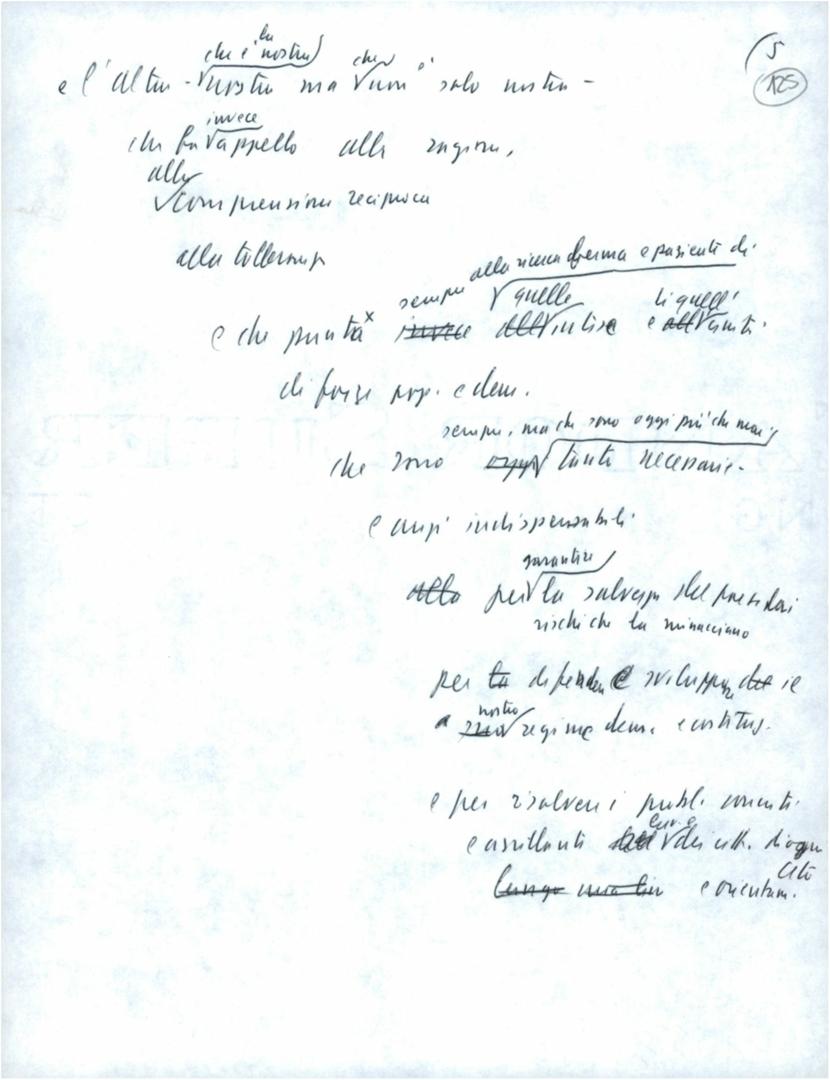 5
125
che è la nostra
e l'altra - nostra ma che non è solo nostra -
invece
che fa appello alla ragione,
alla
comprensione reciproca
alla tolleranza
alla ricerca ferma e paziente di
sempre quelle di quelle
e che punta x invece all'intese e all'unità
di forze pop. e dem.
sempre, ma che sono oggi più che mai
che sono oggi tanto necessarie -
e anzi indispensabili
garantire
alla per la salvezza del paese dai
rischi che la minacciano
per la difendere e sviluppare del il
nostro
suo regime dem. e costituz.
e per risolvere i probl. concreti
e assillanti dei citt. di ogni
ceto
lunga e orientam.